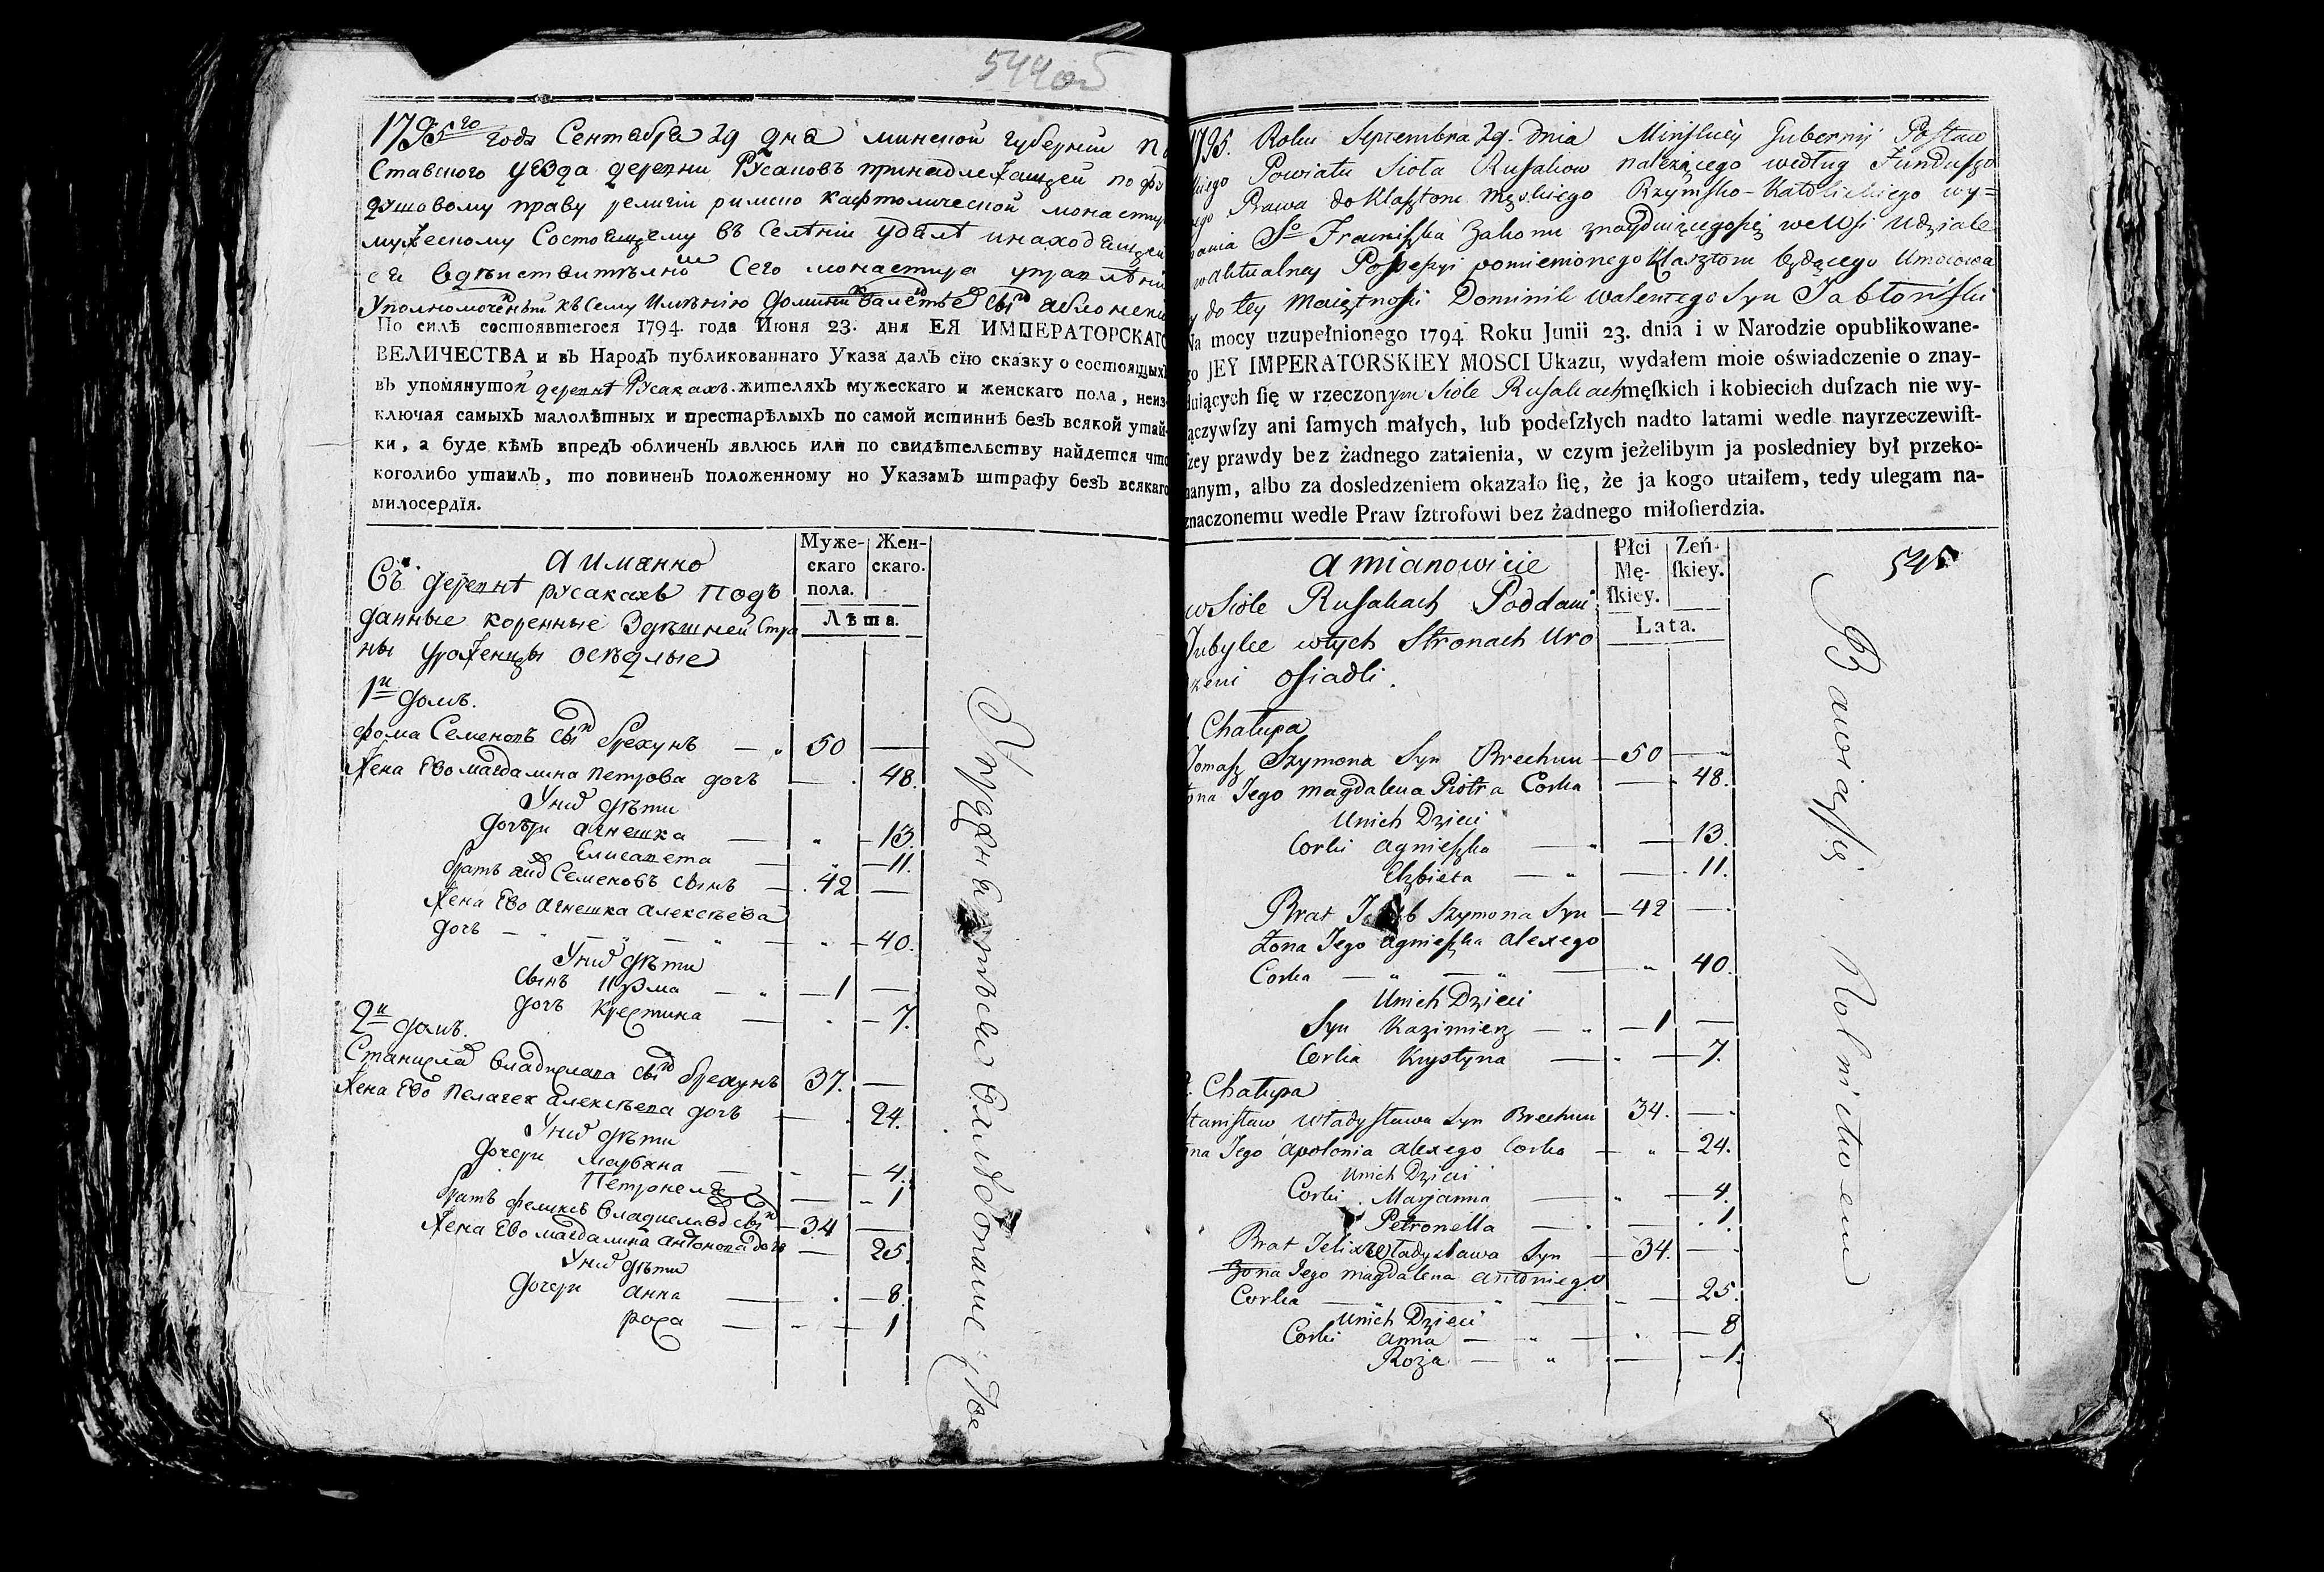 544об
1795го года Сентабра 29 дна минской губерний
Ставского уезда деревни Русаковъ принадлежащей по
душовому праву религии римско кафтолической
мужескому Состоящему въ Селѣнии удѣлѣ инаходящей
Сего монастира
Уполномоченъй къ Сему Имѣнию
По силѣ состоявшегося 1794 года Июня 23. дня ЕЯ ИМПЕРАТОРСКАГО
ВЕЛИЧЕСТВА и въ Народъ публикованнаго Указа далъ сїю сказку о состоящихъ
въ упомянутой деревнѣ Русакахъ жителяхъ мужескаго и женскаго пола, неиз
ключая самыхъ малолѣтных и престарѣлыхъ по самой истиннѣ безъ всякой утай-
ки, а буде кѣмъ впредъ обличенъ явлюсь или по свидѣтельству найдется что
коголибо утаилъ, то повиненъ положенному по Указамъ штрафу безъ всякаго
милосердїя.
Муже-скаго пола. Жен-скаго.
Лѣта.
а имянно
Съ деревнѣ русакахъ подъ
данные коренные Здѣшней Стра
ны уроженцы осѣдлые
1й домъ.
фома Семеновъ Сын брехунъ — 50 —
Жена Ево магдалина петрова дочь — 48.
Уних дѣти
дочери агнешка — 13.
Елисавета — 11.
братъ Семеновъ сынъ — 42 —
Жена Ево агнешка алексѣева
дочь — 40.
Уних дѣти
Сынъ — 1 —
дочь крестина — 7.
2й домъ.
Станислав владислава Сын брехунъ 37. —
Жена Ево алексѣева дочь — 24.
Уних дѣти
дочери марьяна — 4.
Петронеля — 1
братъ феликсъ владиславов Сын — 34 —
Жена Ево магдалина антонова дочь — 25.
Уних дѣти
дочери анна — 8.
роза — 1
1795. Roku Septembra 29. dnia Minſkiey Gubernij Poſtaw
ſkiego Powiatu Sioła Ruſakow należącego według Funduſzo
wego Prawa do Klaſztoru Męskiego Rzymsko-Katolickiego wy=
znania So Franciſzka Zakonu znayduiącegoſię we Wsi Udziale
w aktualney Poſseſsyi pomienionego Klasztoru będącego Umocowa
y do tey Maiętnoſci Dominik Walentego Syn Jabłoński
Na mocy uzupełnionego 1794 Roku Junii 23. dnia i w Narodzie opublikowane-
go JEY IMPERATORSKIEY MOSCI Ukazu, wydałem moie oświadczenie o znay-
duiących ſię w rzeczonym Siole Ruſakach męſkich i kobiecich duſzach nie wy-
łączywſzy ani ſamych małych, lub podeſzłych nadto latami wedle nayrzeczewiſt-
ſzey prawdy bez żadnego zataienia, w czym jeżelibym ja posledniey był przeko-
nanym, albo za dosledzeniem okazało ſię, że ja kogo utaiłem, tedy ulegam na-
znaczonemu wedle Praw ſztrofowi bez żadnego miłoſierdzia.
545
Płci Mę-ſkiey. Zeń-ſkiey.
Lata.
a mianowicie
w Siole Ruſakach Poddani
w tych Stronach Uro
dzeni oſiadli.
1. Chałupa
Tomaſz Szymona Syn Brechun — 50 —
Żona Jego Magdalena Piotra Corka — 48.
U nich Dzieci
Corki Agnieſzka — 13.
Elżbieta — 11.
Brat Jakub Szymona Syn — 42 —
Żona Jego Agnieſzka Alexego
Corka — 40.
U nich Dzieci
Syn Kazimierz — 1 —
Corka Krystyna — 7.
2. Chałupa
Stanisław Władysława Syn Brechun 34. —
Żona Jego Apolonia Alexego Corka — 24.
U nich Dzieci
Corki Marjanna — 4.
Petronella — 1.
Brat Felix Władysława Syn — 34. —
Żona Jego Magdalena Antoniego
Corka — 25.
U nich Dzieci
Corki Anna — 8
Roża — 1.